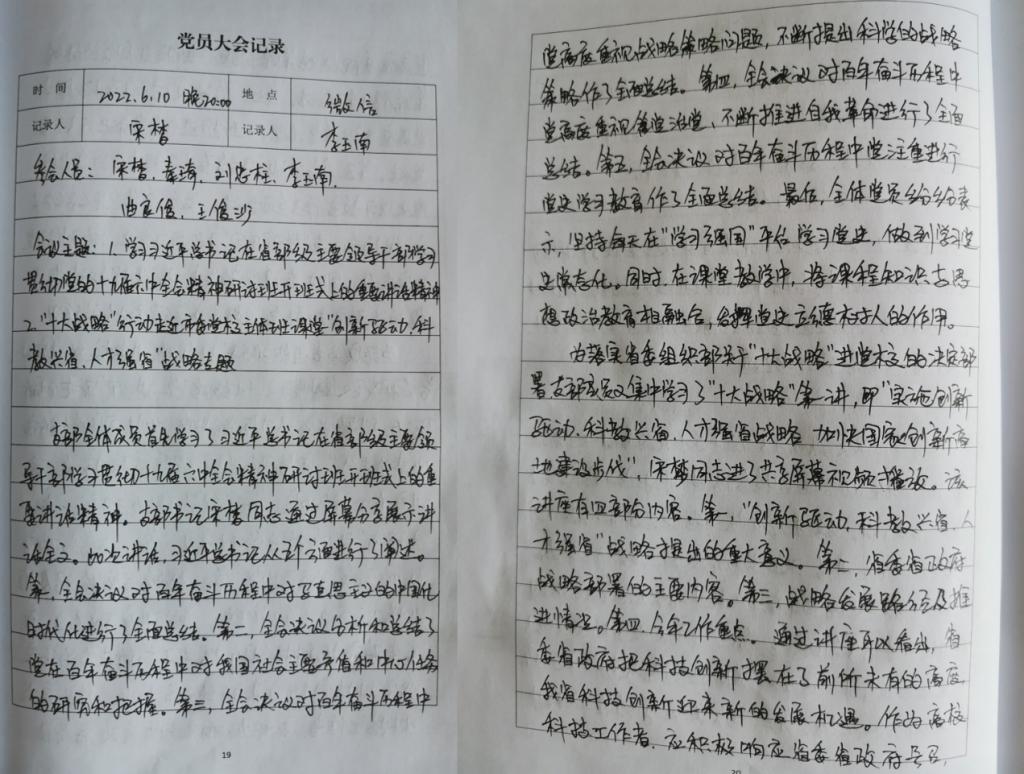 党员大会记录
时 间 2022.6.10 晚20:00 地 点 微信
记录人 宋梦 记录人 李玉南
参会人员：宋梦、秦琦、刘忠柱、李玉南、
曲良俊、王俊沙
会议主题：1.学习习近平总书记在省部级主要领导干部学习
贯彻党的十九届六中全会精神研讨班开班式上的重要讲话精神
2.“十大战略”行动走近市委党校主体班课堂“创新驱动、科
教兴省、人才强省”战略专题
支部全体成员首先学习了习近平总书记在省部级主要领
导干部学习贯彻十九届六中全会精神研讨班开班式上的重
要讲话精神。支部书记宋梦同志通过屏幕分享展示讲
话全文。此次讲话，习近平总书记从五个方面进行了阐述。
第一，全会决议对百年奋斗历程中对马克思主义的中国化
时代化进行了全面总结。第二，全会决议分析和总结了
党在百年奋斗历程中对我国社会主要矛盾和中心任务
的研究和把握。第三，全会决议对百年奋斗历程中
19
党高度重视战略策略问题，不断提出科学的战略
策略作了全面总结。第四，全会决议对百年奋斗历程中
党高度重视管党治党、不断推进自我革命进行了全面
总结。第五，全会决议对百年奋斗历程中党注重进行
党史学习教育作了全面总结。最后，全体党员纷纷表
示，坚持每天在“学习强国”平台学习党史，做到学习党
史常态化。同时，在课堂教学中，将课程知识与思
想政治教育相融合，发挥党史立德树人的作用。
为落实省委组织部关于“十大战略”进党校的决定部
署支部成员又集中学习了“十大战略”第一讲，即“实施创新
驱动、科教兴省、人才强省战略 加快国家创新高
地建设步伐”，宋梦同志进了共享屏幕视频播放。该
讲座有四部分内容。第一，“创新驱动、科教兴省、人
才强省”战略提出的重大意义。第二，省委省政府
战略部署的主要内容。第三，战略发展路径及推
进情况。第四，今年工作重点。通过讲座可以看出，省
委省政府把科技创新摆在了前所未有的高度
我省科技创新迎来新的发展机遇。作为高校
科技工作者，应积极响应省委省政府号召，
20